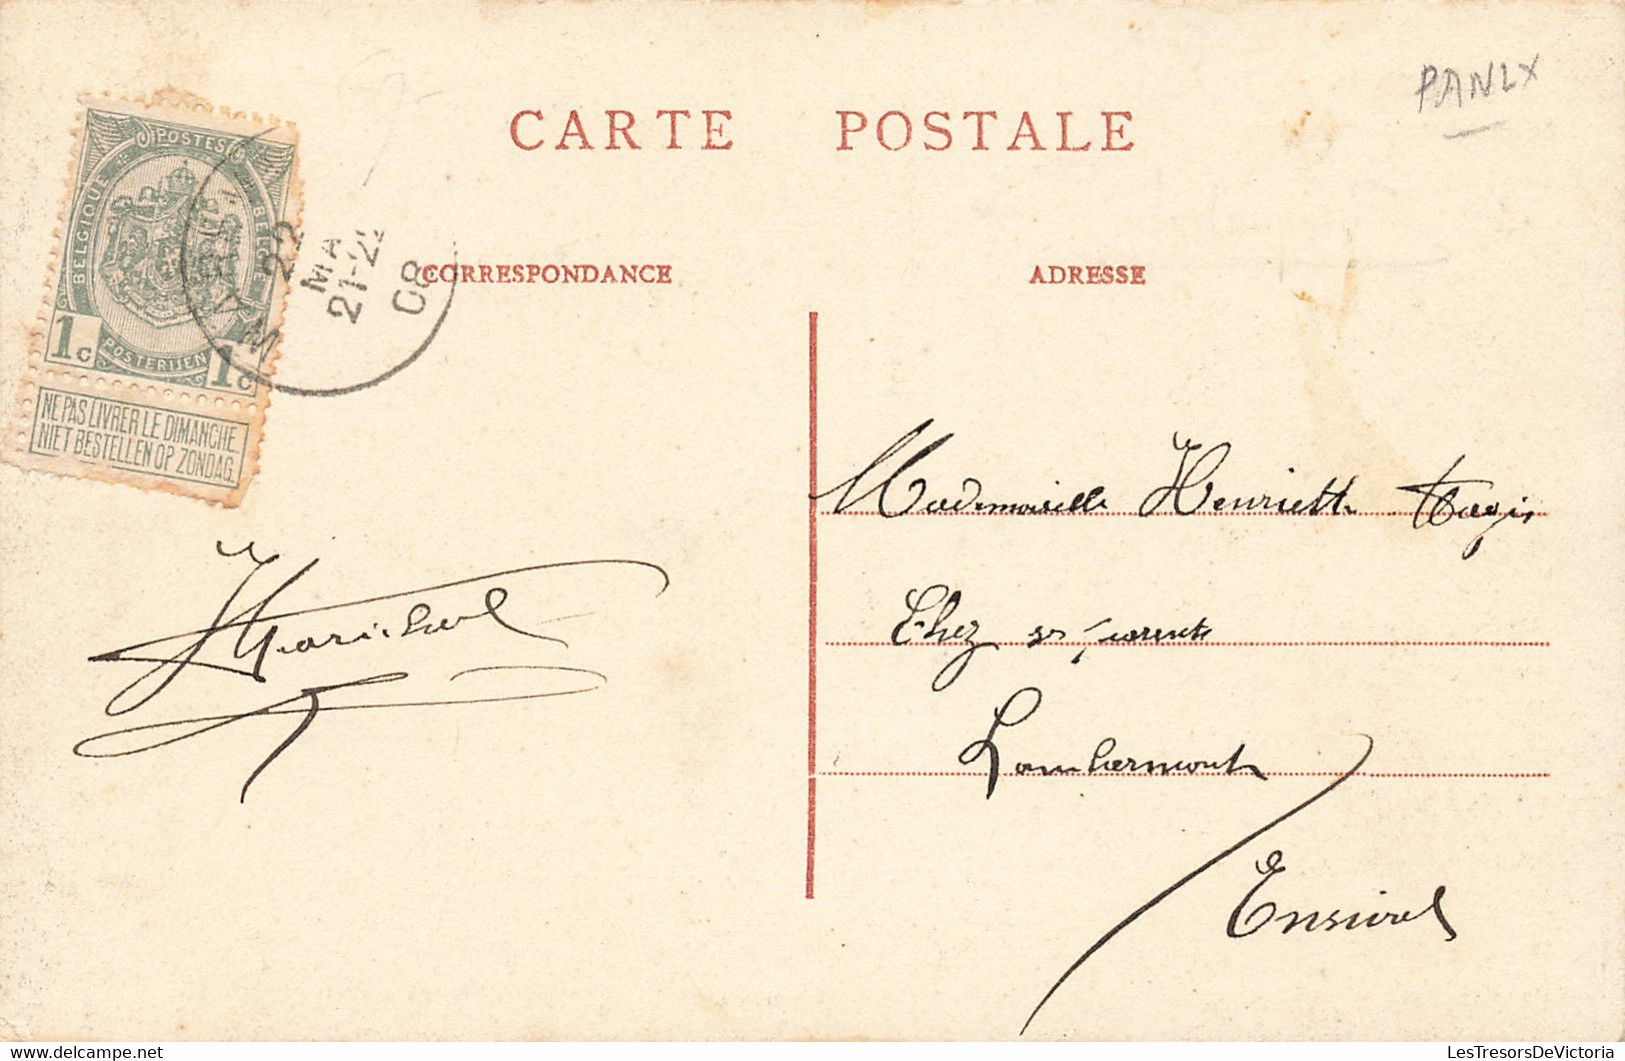 CARTE POSTALE
PANLX
POSTES
BELGIQUE
BELGIE
POSTERIJEN
1c 1c
NE PAS LIVRER LE DIMANCHE
NIET BESTELLEN OP ZONDAG.
22
MA
21-2
08
CORRESPONDANCE
ADRESSE
Mademoiselle Henriette
Chez ses parents
Lambermont
Ensival
Maréchal
LesTresorsDeVictoria